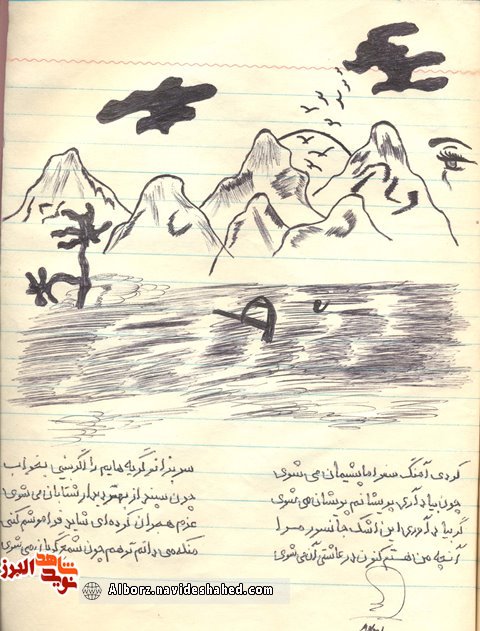 کردی آهنگ سفر اما پشیمان می شوی
سر بزانو گریه هایم را اگر بینی بخواب
چون بیاد آری پریشانم پریشان می شوی
چون سپند از بهر دیدار شتابان می شوی
گر بیاد آوری این اشک جانسوز مرا
عزم هجران کرده ای شاید فراموشم کنی
آنچه من هستم کنون در عاشقی آن می شوی
منکه می دانم تو هم چون شمع گریان می شوی
شاهد
نوید
البرز
Alborz.navideshahed.com